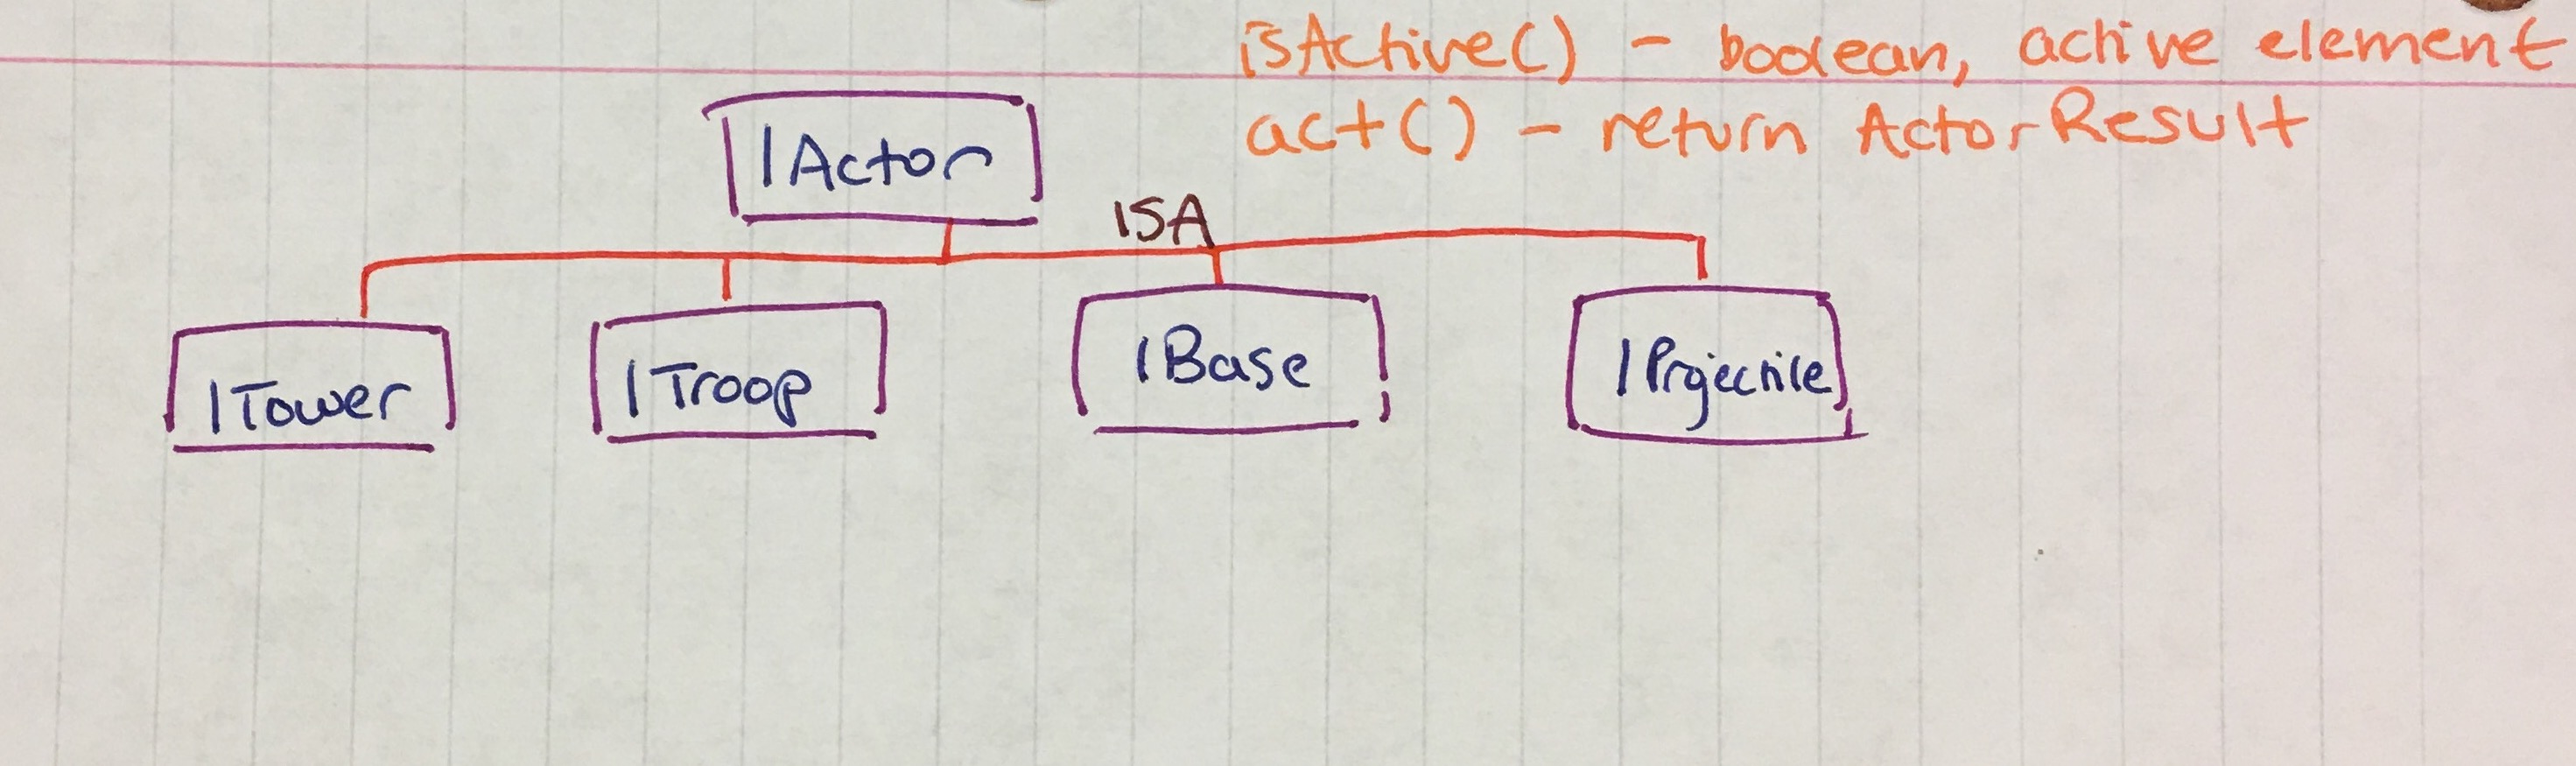 isActive() - boolean, active element
act() - return ActorResult
IActor
ISA
ITower
ITroop
IBase
IProjectile